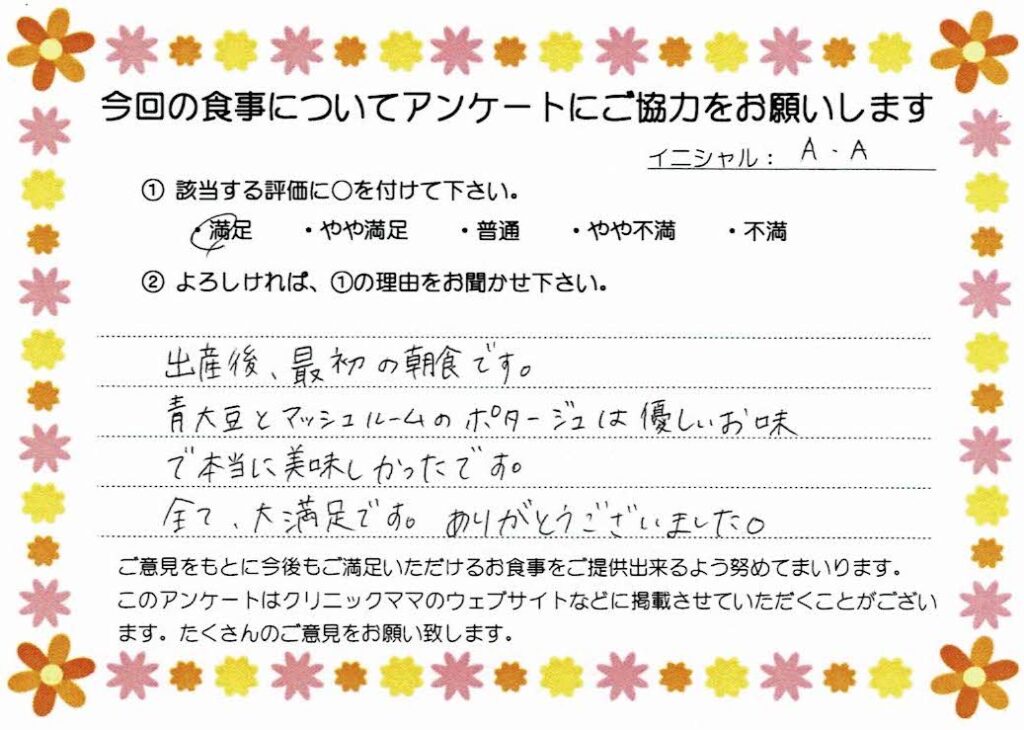 今回の食事についてアンケートにご協力をお願いします
イニシャル： A.A
① 該当する評価に〇を付けて下さい。
・満足 ・やや満足 ・普通 ・やや不満 ・不満
② よろしければ、①の理由をお聞かせ下さい。
出産後、最初の朝食です。
青大豆とマッシュルームのポタージュは優しいお味
で本当に美味しかったです。
全て、大満足です。ありがとうございました。
ご意見をもとに今後もご満足いただけるお食事をご提供出来るよう努めてまいります。
このアンケートはクリニックママのウェブサイトなどに掲載させていただくことがござい
ます。たくさんのご意見をお願い致します。